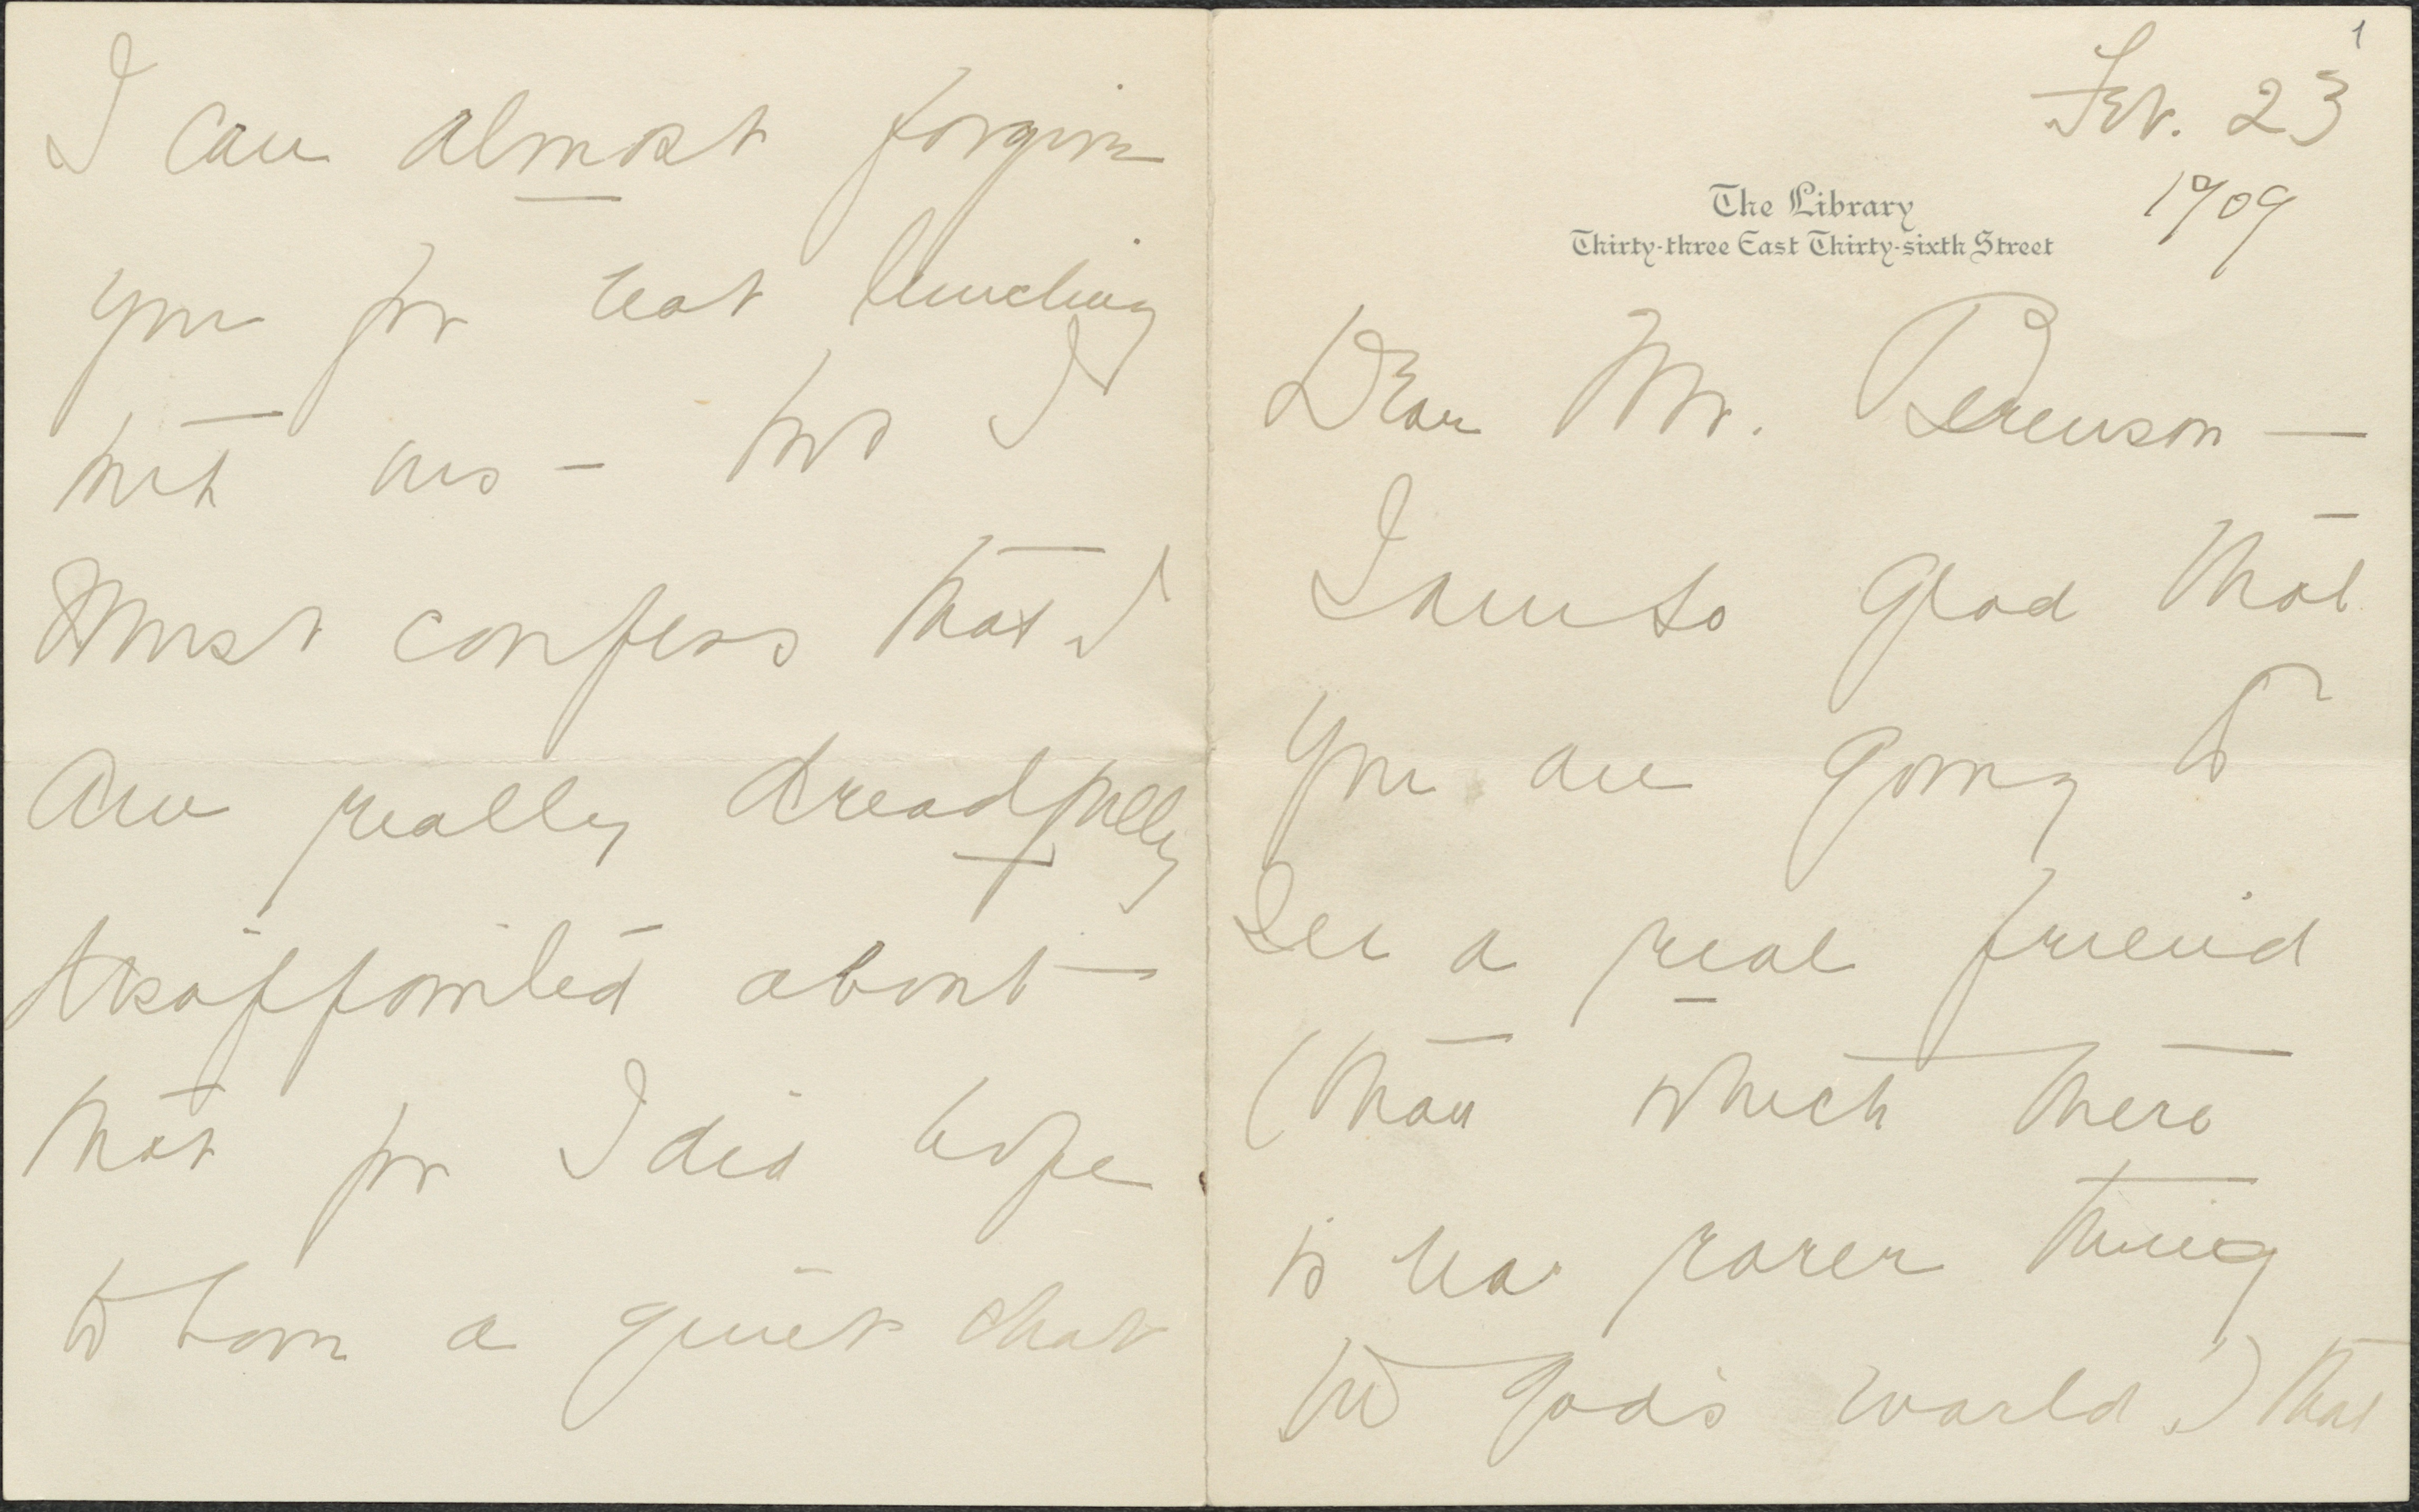 1
Feb. 23
1909
The Library
Thirty-three East Thirty-sixth Street
Dear Mr. Berenson —
I am so glad that
you are going to
see a real friend
(than which there
is no rarer thing
in God's world.) that
I can almost forgive
you for not lunching
with us – but I
must confess that I
am really dreadfully
disappointed about
that for I did hope
to have a quiet chat